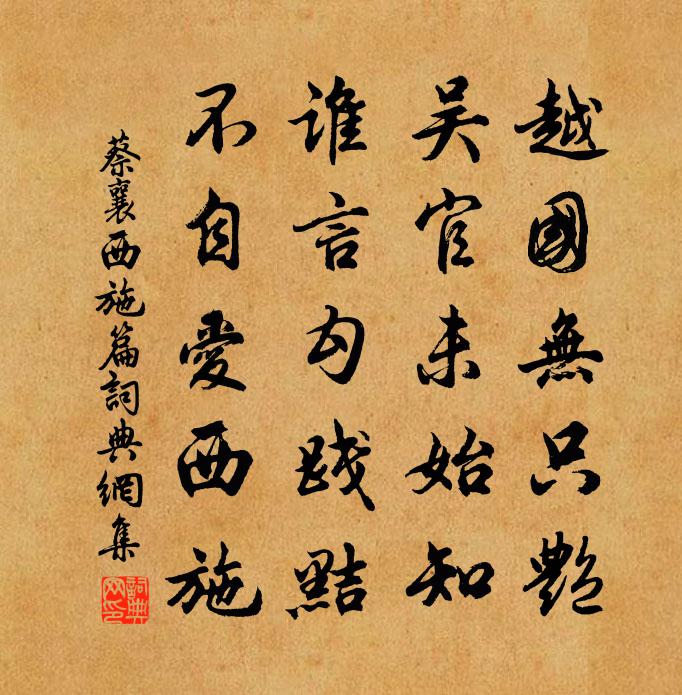 越國無只艷
吳官未始知
誰言勾踐黠
不自愛西施
蔡襄西施篇詞典網集
詞典網印